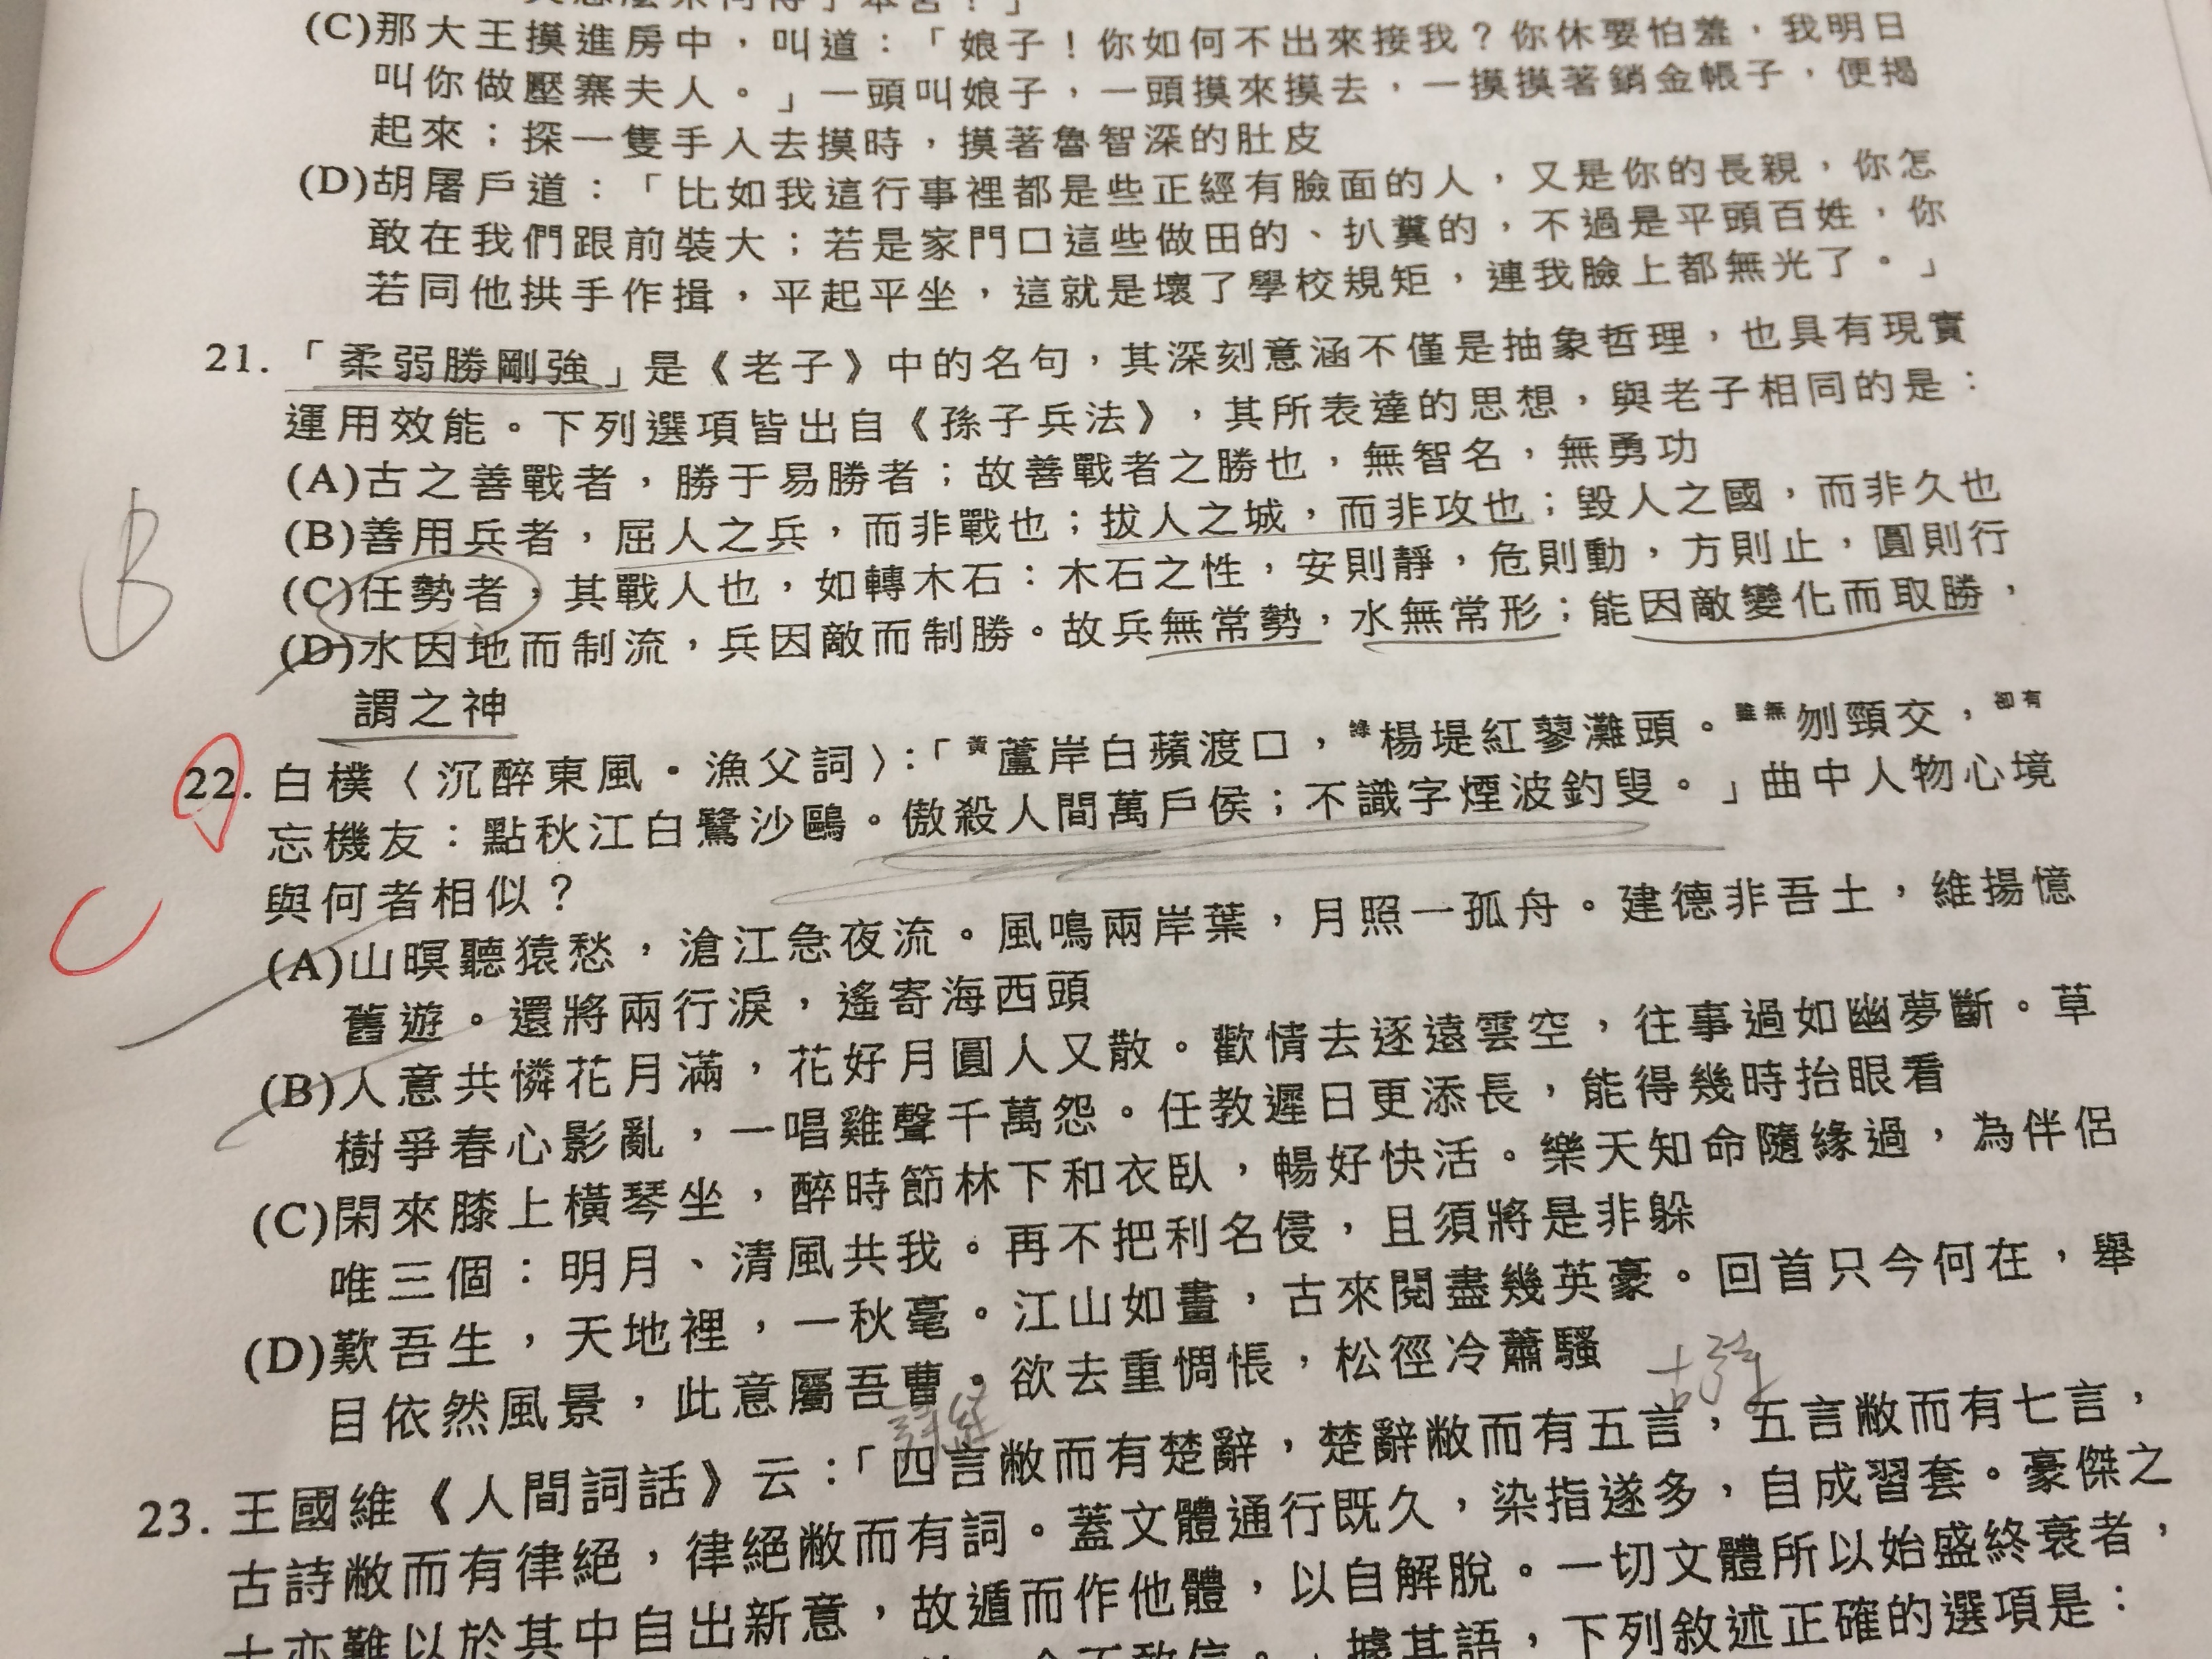 (C)那大王摸進房中，叫道：「娘子！你如何不出來接我？你休要怕羞，我明日
叫你做壓寨夫人。」一頭叫娘子，一頭摸來摸去，一摸摸著銷金帳子，便揭
起來；探一隻手入去摸時，摸著魯智深的肚皮
(D)胡屠戶道：「比如我這行事裡都是些正經有臉面的人，又是你的長親，你怎
敢在我們跟前裝大；若是家門口這些做田的、扒糞的，不過是平頭百姓，你
若同他拱手作揖，平起平坐，這就是壞了學校規矩，連我臉上都無光了。」
21.「柔弱勝剛強」是《老子》中的名句，其深刻意涵不僅是抽象哲理，也具有現實
運用效能。下列選項皆出自《孫子兵法》，其所表達的思想，與老子相同的是：
(A)古之善戰者，勝于易勝者；故善戰者之勝也，無智名，無勇功
B
(B)善用兵者，屈人之兵，而非戰也；拔人之城，而非攻也；毀人之國，而非久也
(C)任勢者，其戰人也，如轉木石：木石之性，安則靜，危則動，方則止，圓則行
(D)水因地而制流，兵因敵而制勝。故兵無常勢，水無常形；能因敵變化而取勝，
謂之神
22.白樸〈沉醉東風·漁父詞〉：「黃蘆岸白蘋渡口，綠楊堤紅蓼灘頭。雖無刎頸交，卻有
忘機友：點秋江白鷺沙鷗。傲殺人間萬戶侯；不識字煙波釣叟。」曲中人物心境
與何者相似？
C
(A)山暝聽猿愁，滄江急夜流。風鳴兩岸葉，月照一孤舟。建德非吾土，維揚憶
舊遊。還將兩行淚，遙寄海西頭
(B)人意共憐花月滿，花好月圓人又散。歡情去逐遠雲空，往事過如幽夢斷。草
樹爭春心影亂，一唱雞聲千萬怨。任教遲日更添長，能得幾時抬眼看
(C)閑來膝上橫琴坐，醉時節林下和衣臥，暢好快活。樂天知命隨緣過，為伴侶
唯三個：明月、清風共我。再不把利名侵，且須將是非躲
(D)歎吾生，天地裡，一秋毫。江山如畫，古來閱盡幾英豪。回首只今何在，舉
目依然風景，此意屬吾曹。欲去重惆悵，松徑冷蕭騷
詩經
古詩
23.王國維《人間詞話》云：「四言敝而有楚辭，楚辭敝而有五言，五言敝而有七言，
古詩敝而有律絕，律絕敝而有詞。蓋文體通行既久，染指遂多，自成習套。豪傑之
士亦難以於其中自出新意，故遁而作他體，以自解脫。一切文體所以始盛終衰者，
據其語，下列敘述正確的選項是：